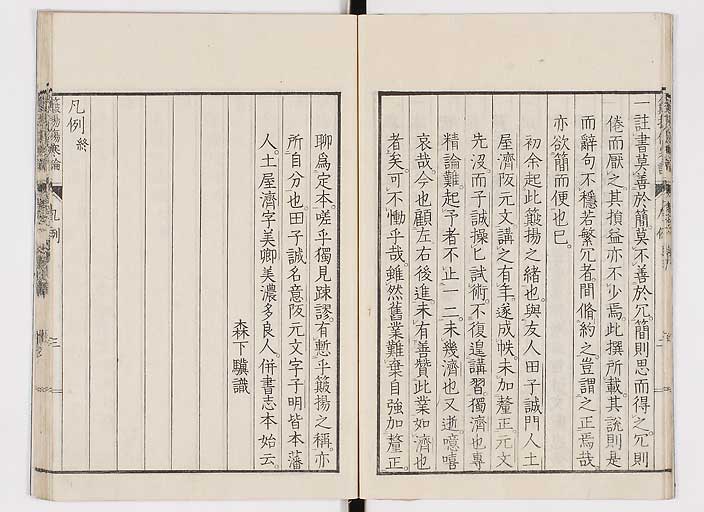 一註書莫善於簡莫不善於冗。簡則思而得之。冗則
倦而厭之。其損益亦不少焉。此撰所載。其說則是
而辭句不穩。若繁冗者。間脩約之。豈謂之正焉哉。
亦欲簡而便也已。
初余起此簸揚之緒也。與友人田子誠門人土
屋濟阪元文講之有年。遂成帙。未加釐正。元文
先沒。而子誠操匕試術。不復遑講習。獨濟也專
精論難。起予者不止一二。未幾濟也又逝。噫嘻
哀哉。今也顧左右後進。未有善贊此業如濟也
者矣。可不慟乎哉。雖然舊業難棄。自強加釐正。
聊為定本。嗟乎獨見疎謬。有慙乎簸揚之稱。亦
所自分也。田子誠名意。阪元文字子明。皆本藩
人。土屋濟字美卿。美濃多良人。併書志本始云。
森下驥識
凡例終
簸揚傷寒論
凡例
三